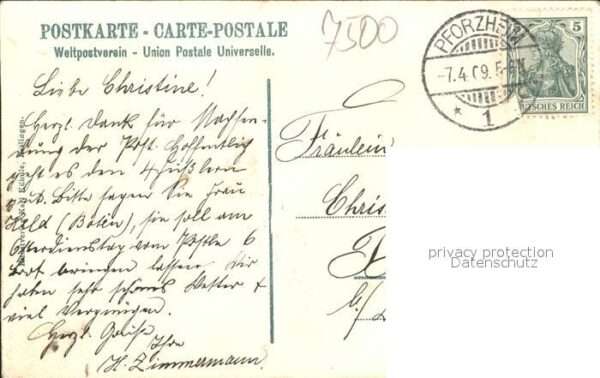 POSTKARTE - CARTE-POSTALE
Weltpostverein - Union Postale Universelle.
7500
PFORZHEIM
-7.4.09. 5-6N
* 1
5
DEUTSCHES REICH
Liebe Christine!
Herzl. Dank für Nachsen-
dung der Post. Hoffentlich
geht es den 4 Füßlern
gut. Bitte sagen Sie Frau
Held (Boten), sie soll am
Osterdienstag vom 6
Brot bringen lassen. Wir
haben sehr schönes Wetter &
viel Vergnügen.
Herzl. Grüße
Ihre
H. Zimmermann.
Fräulein
Chris
privacy protection
Datenschutz